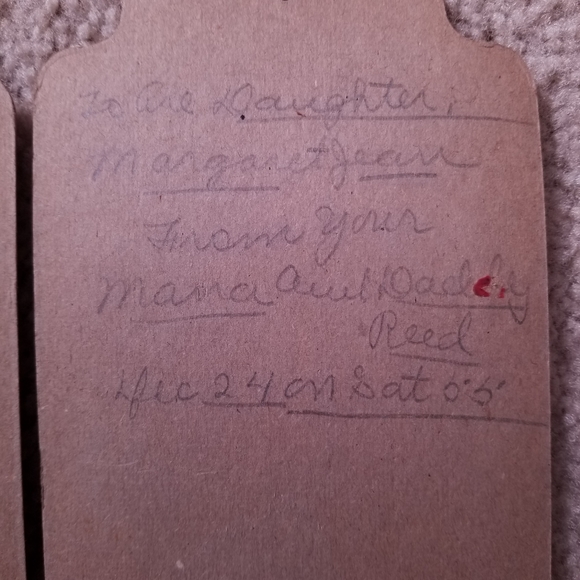 To Are Daughter,
Margaret Jean
From Your
Mama And Daddy
Reed
Dec 24 on Sat 55